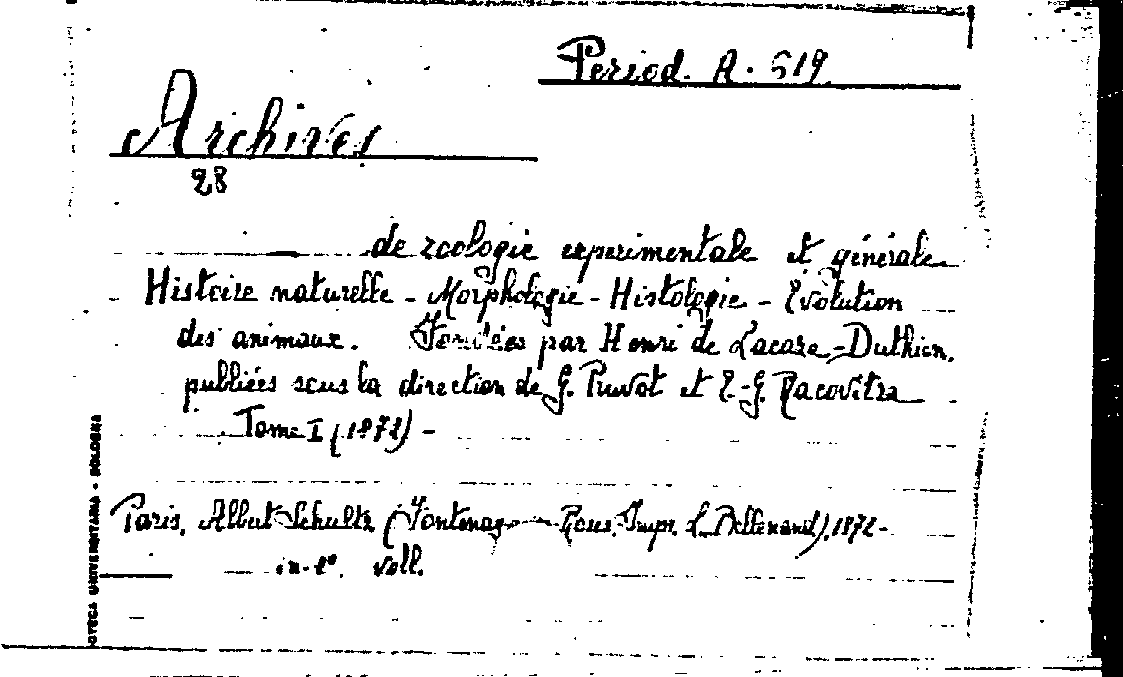 Period. A. 519
Archives
28
de zoologie experimentale et générale
Histoire naturelle - Morphologie - Histologie - Evolution
des animaux. Fondées par Henri de Lacaze-Duthiers.
publiées sous la direction de G. Pruvot et E.-G. Racovitza
Tome I (1872) -
Paris, Albert Schultz (Fontenay Roses, Impr. L. Bellenand), 1872-
voll.
OTECA UNIVERSITARIA - BOLOGNA